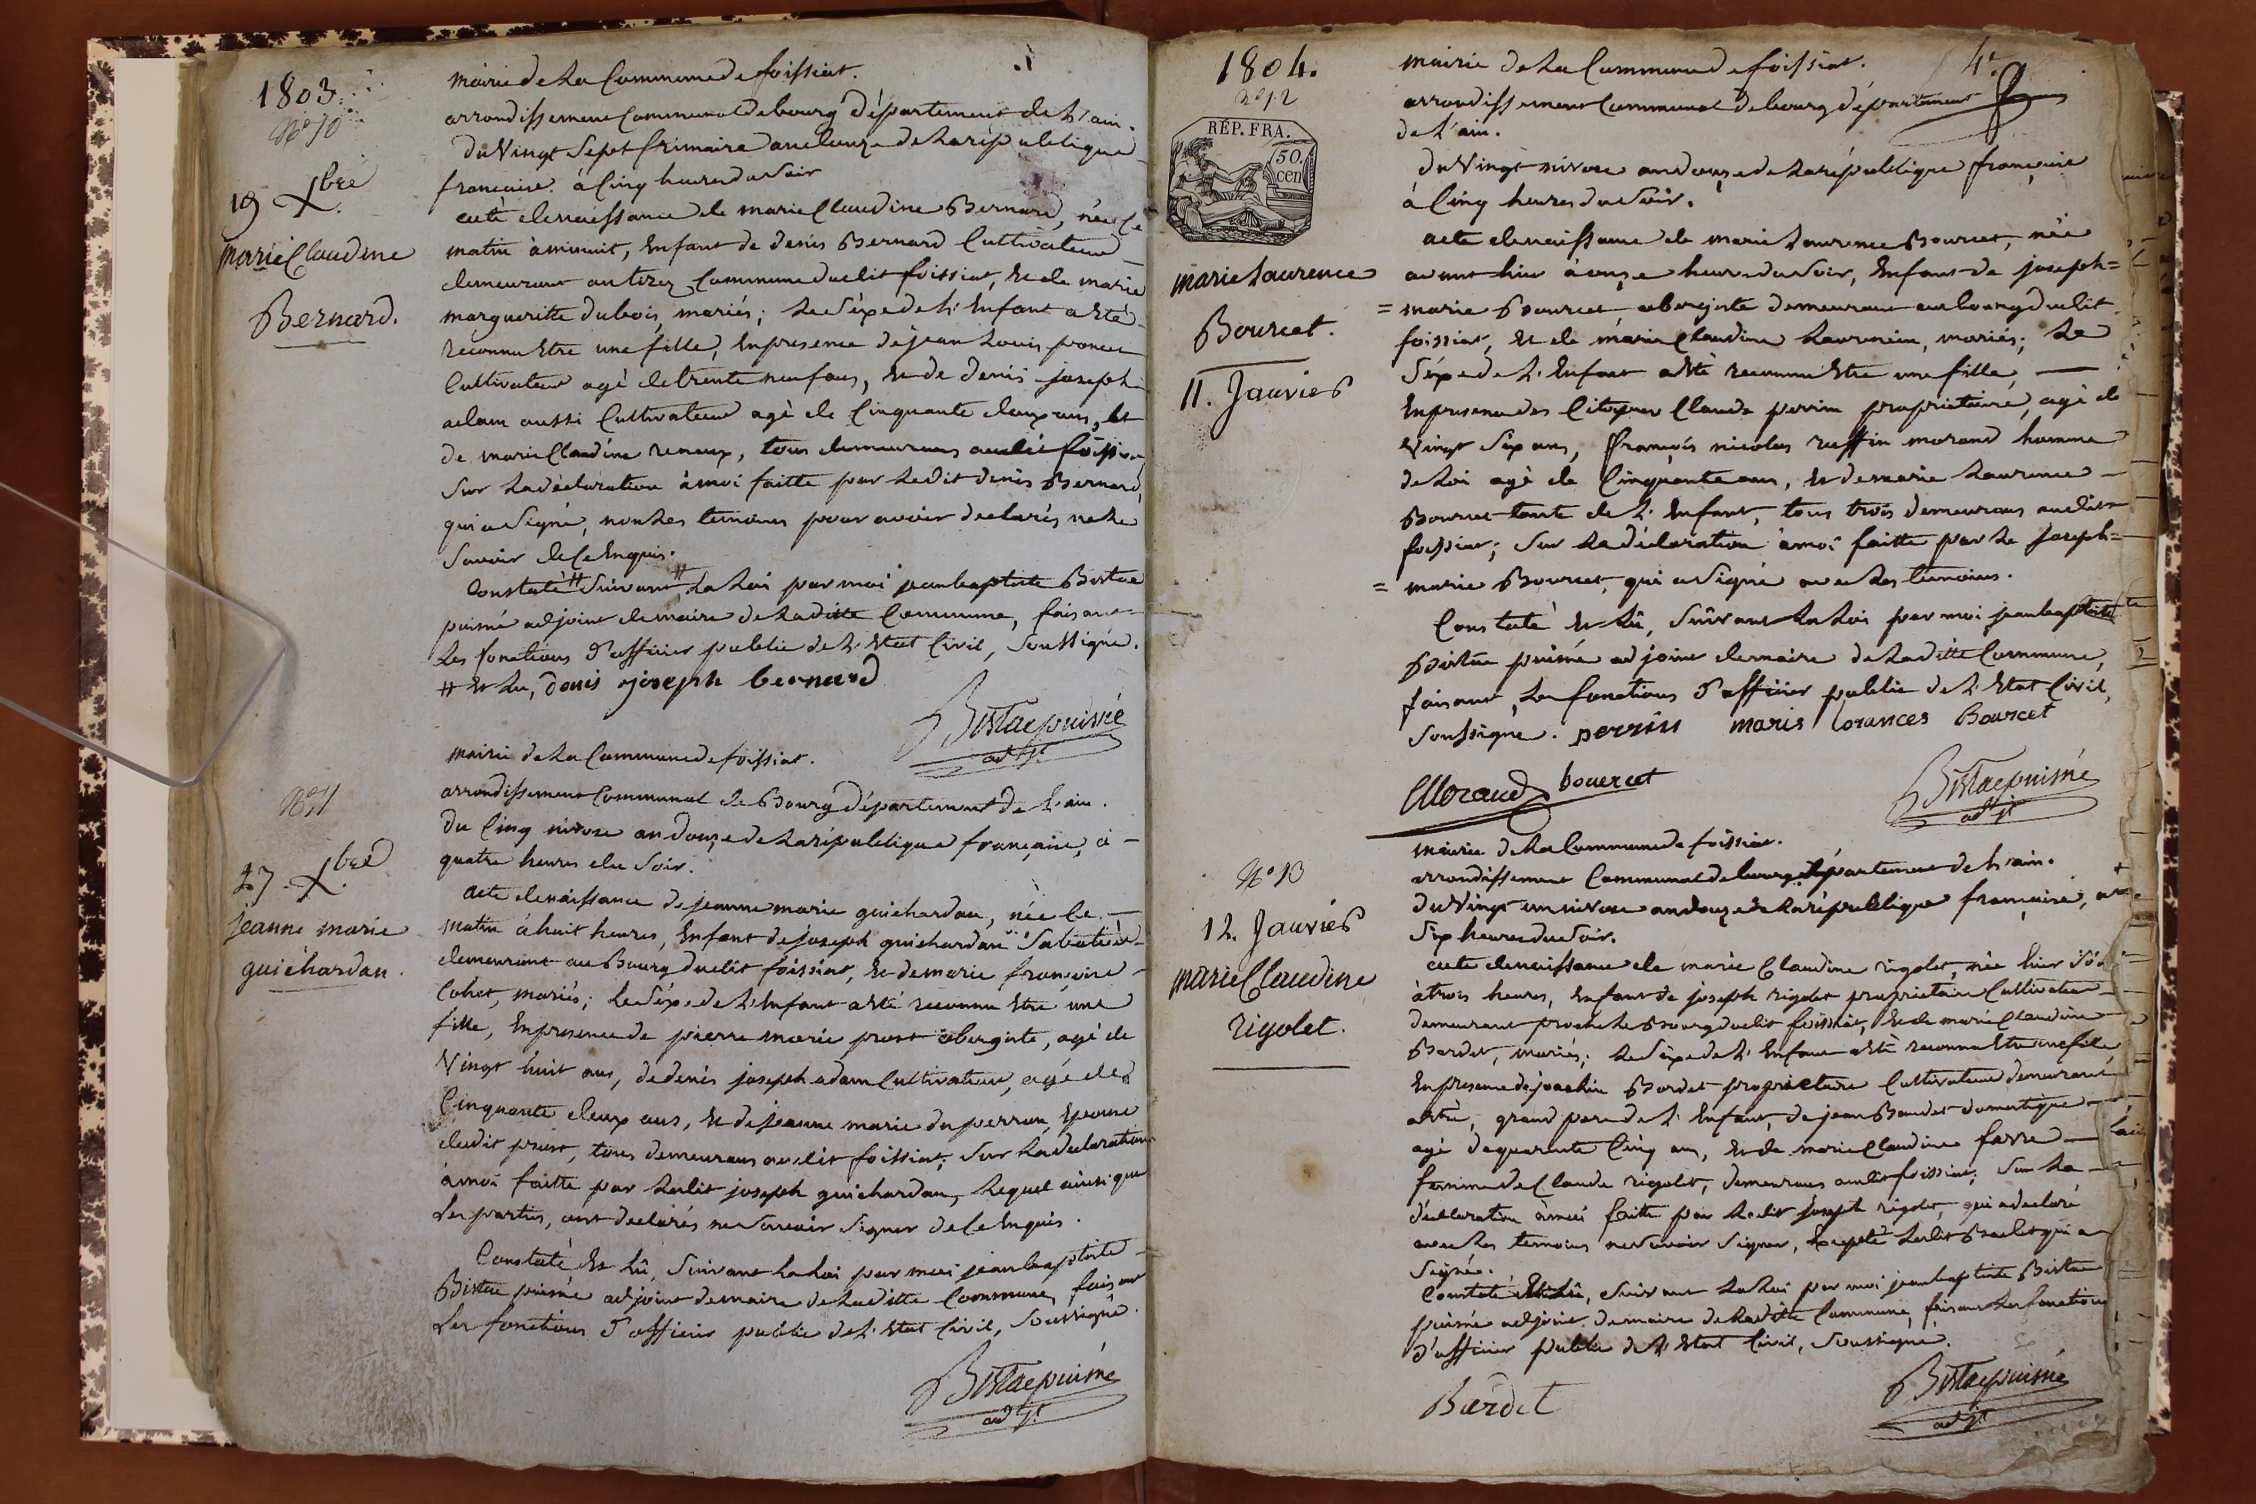 1803.
N° 10
19 Xbre
marie Claudine
Bernard.
mairie de La Commune de foissiat.
arrondissement Communal de bourg département de L'ain.
du Vingt Sept frimaire an douze de La république
francaise. à Cinq heures du Soir
acte de naissance de marie Claudine Bernard, née Ce
matin à minuit, Enfant de denis Bernard Cultivateur
demeurant au tirez Commune dudit foissiat, Et de marie
margueritte dubois, mariés; Le Séxe de L'Enfant a Eté
reconnu Etre une fille, En presence de jean Louis poncet
Cultivateur agé de trente neuf ans, Et de denis joseph
adam aussi Cultivateur agé de Cinquante deux ans, et
de marie Claudine renoux, tous demeurans audit foissiat
Sur La déclaration à moi faitte par Ledit denis Bernard,
qui a Signé, non Les temoins pour avoir declarés ne Le
Savoir de Ce Enquis.
Constaté # Suivant La Loi par moi jean baptiste Bistae
puisné adjoint de maire de Laditte Commune, faisant
Les fonctions d'officier public de L'Etat Civil, Soussigné.
# Et Lu, denis joseph bernard
Bistae puisné
adjt
N° 11
27 Xbre
jeanne marie
guichardan.
mairie de La Commune de foissiat.
arrondissement Communal de Bourg département de L'ain.
du Cinq nivose an douze de La république française, à
quatre heures du Soir.
acte de naissance de jeanne marie guichardan, née Ce
matin à huit heures, Enfant de joseph guichardan Sabotier
demeurant au Bourg dudit foissiat, Et de marie françoise
Cohet, mariés; Le Séxe de L'Enfant a Eté reconnu Etre une
fille, En presence de pierre marie prost abergiste, agé de
Vingt huit ans, de denis joseph adam Cultivateur, agé de
Cinquante deux ans, Et de jeanne marie duperron, Epouse
dudit prost, tous demeurans audit foissiat; Sur La declaration
à moi faitte par Ledit joseph guichardan, Lequel ainsi que
Les parties, ont declarés ne Savoir Signer de Ce Enquis.
Constaté Et Lû, Suivant La Loi par moi jean baptiste
Bistae puisné adjoint de maire de Laditte Commune, faisant
Les fonctions d'officier public de L'Etat Civil, Soussigné.
Bistae puisné
adjt
1804.
N° 12
RÉP. FRA.
50.
cen
marie Laurence
Bourcet.
11. Janvier
4e
mairie de La Commune de foissiat.
arrondissement Communal de bourg département
de L'ain.
du Vingt nivose an douze de La république française
à Cinq heures du Soir.
acte de naissance de marie Laurence Bourcet, née
avant hier à onze heures du Soir, Enfant de joseph=
= marie Bourcet abergiste demeurant au bourg dudit
foissiat, Et de marie Claudine, mariés; Le
Séxe de L'Enfant a Eté reconnu Etre une fille,
En presence des Citoyens Claude perrin proprietaire, agé de
Vingt Six ans, françois nicolas ruffin morand homme
de Loi agé de Cinquante ans, Et de marie Laurence
Bourcet tante de L'Enfant, tous trois demeurans audit
foissiat; Sur La déclaration à moi faitte par Le joseph=
= marie Bourcet, qui a Signé avec Les temoins.
Constaté Et Lû, Suivant La Loi par moi jean baptiste
Bistae puisné adjoint de maire de Laditte Commune,
faisant, Les fonctions d'officier public de L'Etat Civil,
Soussigné. perrin marie lorances Bourcet
Morand bouercet
Bistae puisné
adjt
N° 13
12. Janvier
marie Claudine
rigolet.
mairie de La Commune de foissiat.
arrondissement Communal de bourg département de L'ain.
du Vingt un nivose an douze de La république française, à
Six heures du Soir.
acte de naissance de marie Claudine rigolet, née hier Soir
à trois heures, Enfant de joseph rigolet proprietaire Cultivateur
demeurant proche Le Bourg dudit foissiat, Et de marie Claudine
Bardet, mariés; Le Séxe de L'Enfant a Eté reconnu Etre une fille
En presence de joachin Bardet proprietaire Cultivateur demeurant
grand pere de L'Enfant, de jean Baudet domestique
agé de quarante Cinq ans, Et de marie Claudine favre
femme de Claude rigolet, demeurans audit foissiat; Sur La
déclaration à moi faitte par Ledit joseph rigolet, qui a declaré
avec Les temoins ne Savoir Signer, Excepté Ledit Bardet qui a
Signé.
Constaté Et Lû, Suivant La Loi par moi jean baptiste Bistae
puisné adjoint de maire de Laditte Commune, faisant Les fonctions
d'officier public de L'Etat Civil, Soussigné.
Bardet
Bistae puisné
adjt